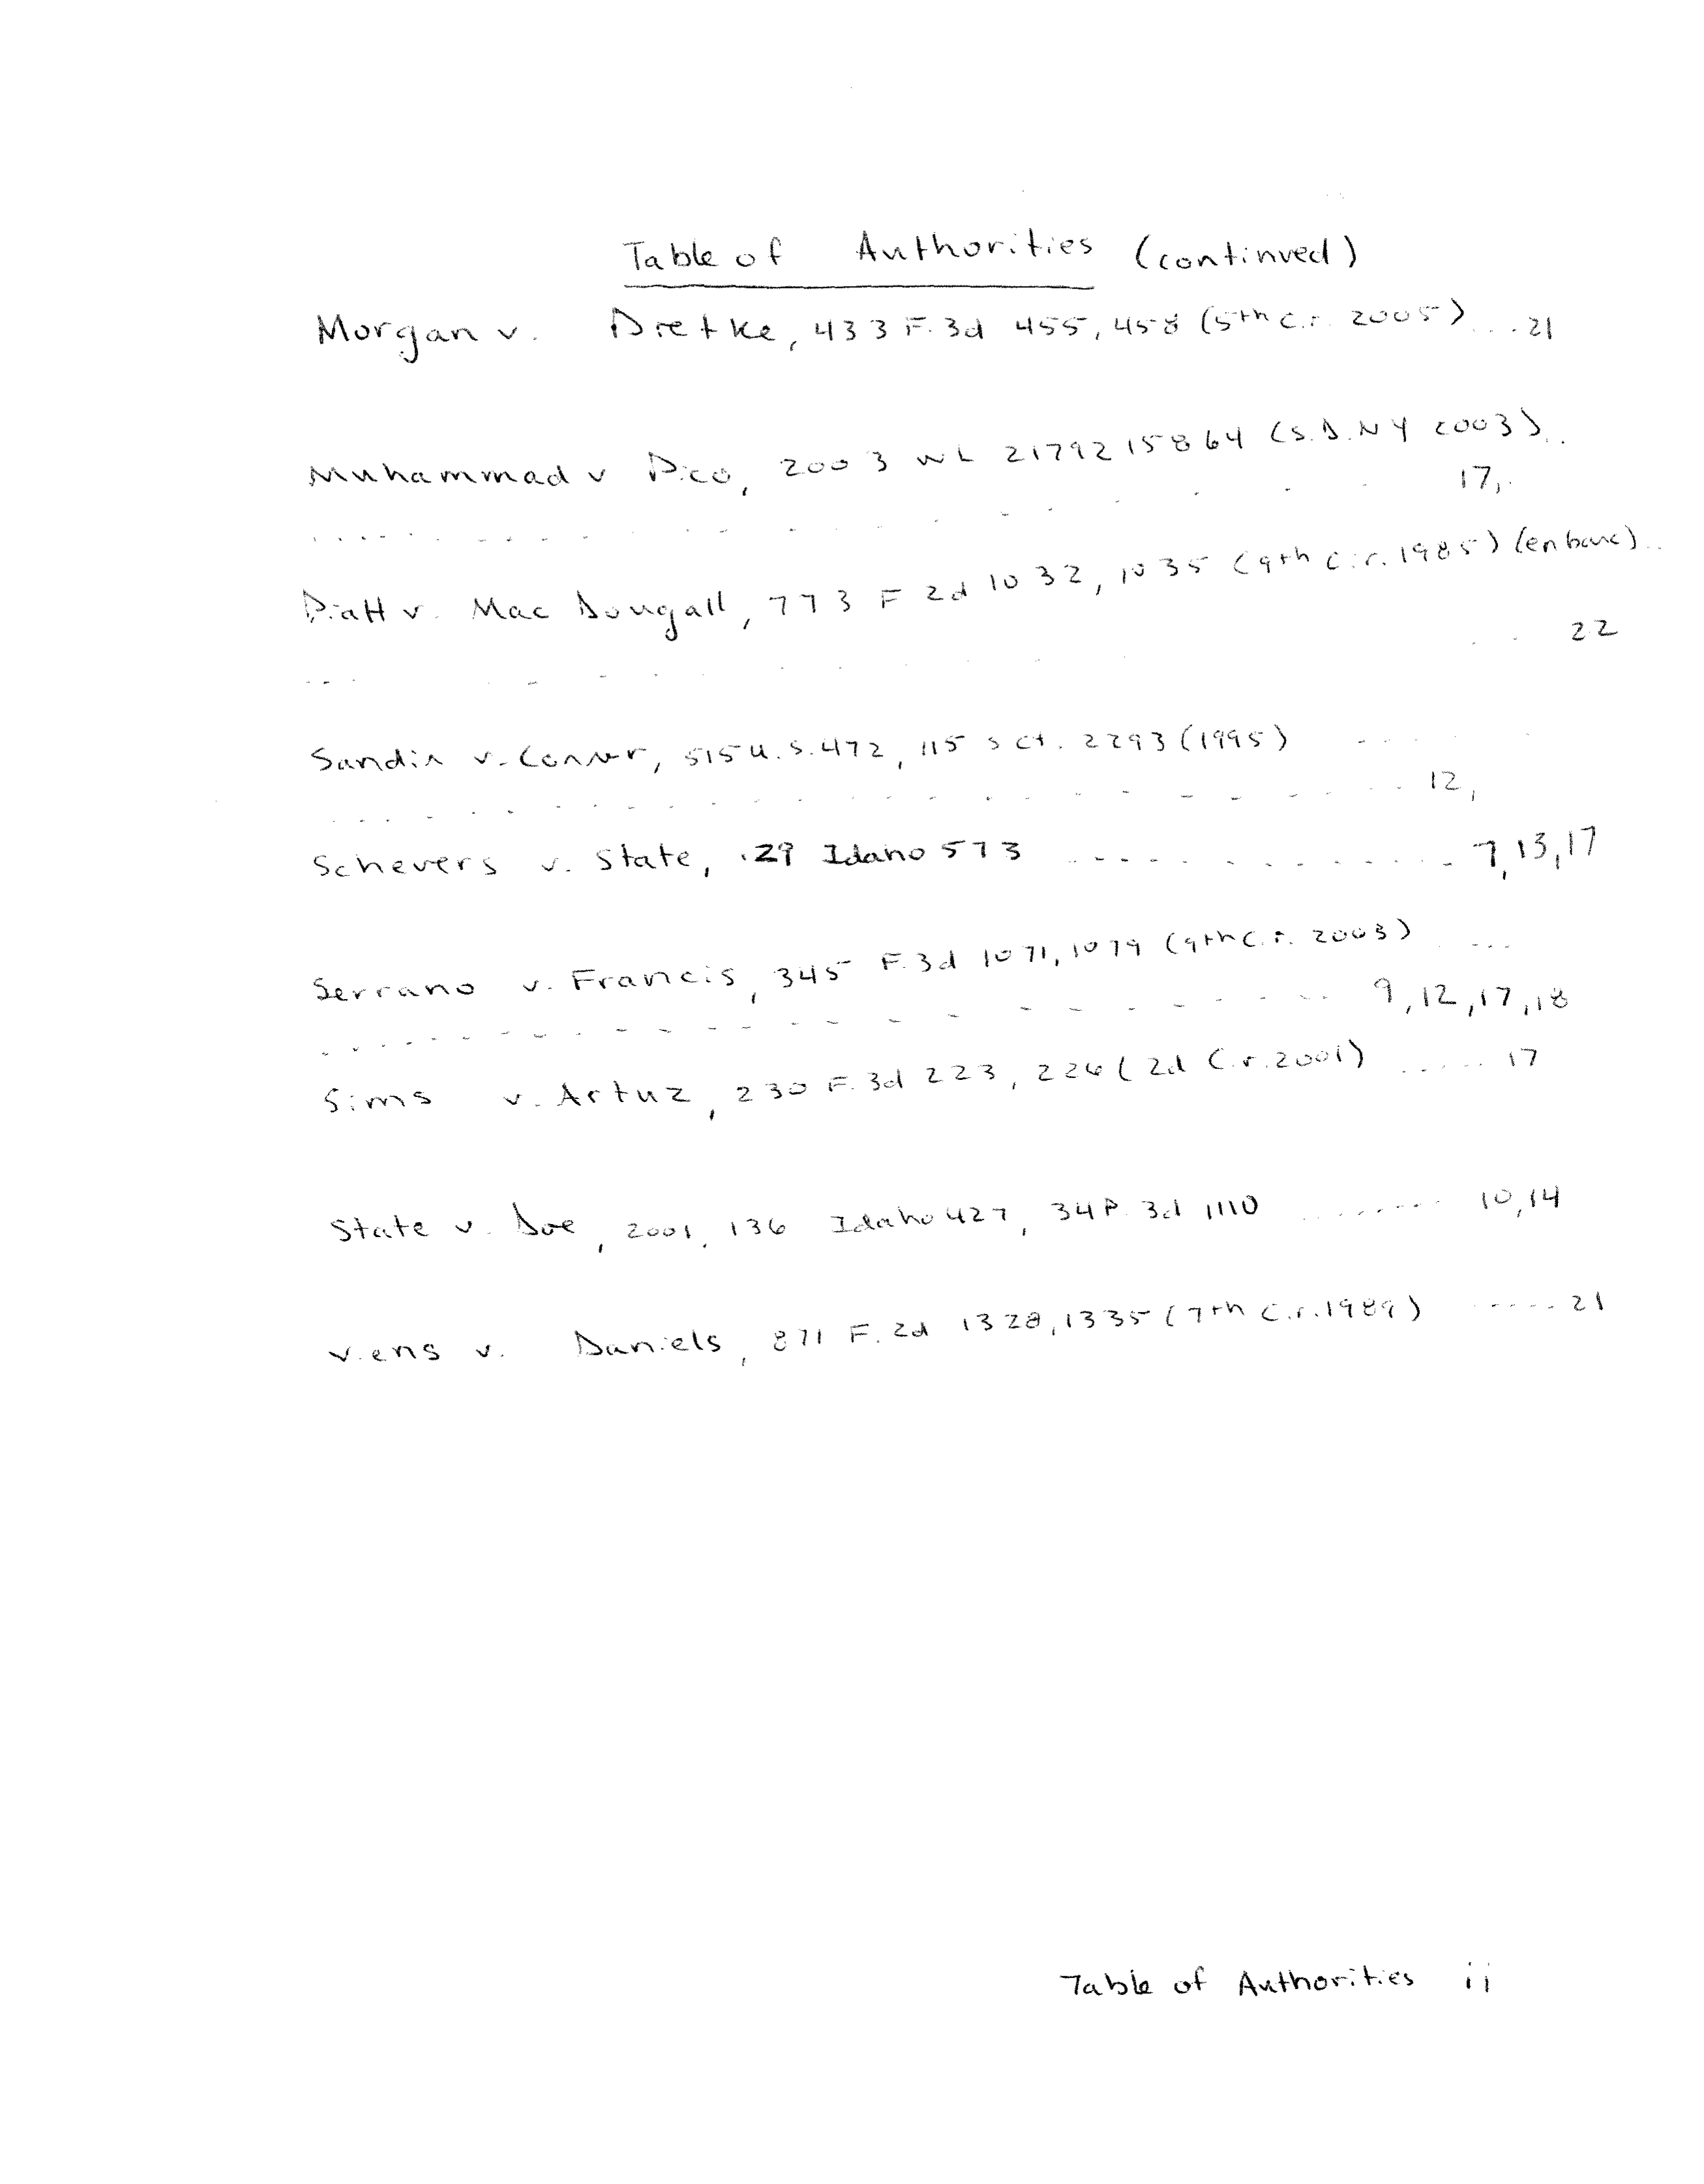 Table of Authorities (continued)
Morgan v. Dretke, 433 F.3d 455, 458 (5th Cir. 2005) ...21
Muhammad v Pico, 2003 WL 21792 15864 (S.D.NY 2003)..
.................... 17,.
Piatt v. Mac Dougall, 773 F 2d 1032, 1035 (9th Cir. 1985) (en banc)..
............ 22
Sandin v. Conner, 515 U.S. 472, 115 S Ct. 2293 (1995) .....
.................... 12,
Scheuers v. State, 129 Idaho 573 ............. 7,13,17
Serrano v. Francis, 345 F.3d 1071, 1079 (9th Cir. 2003) ....
.................... 9,12,17,18
Sims v. Artuz, 230 F.3d 223, 226 (2d Cir. 2001) ...... 17
State v. Doe, 2001, 136 Idaho 427, 34 P. 3d 1110 ........ 10,14
Viens v. Daniels, 871 F. 2d 1328, 1335 (7th Cir. 1989) ..... 21
Table of Authorities ii